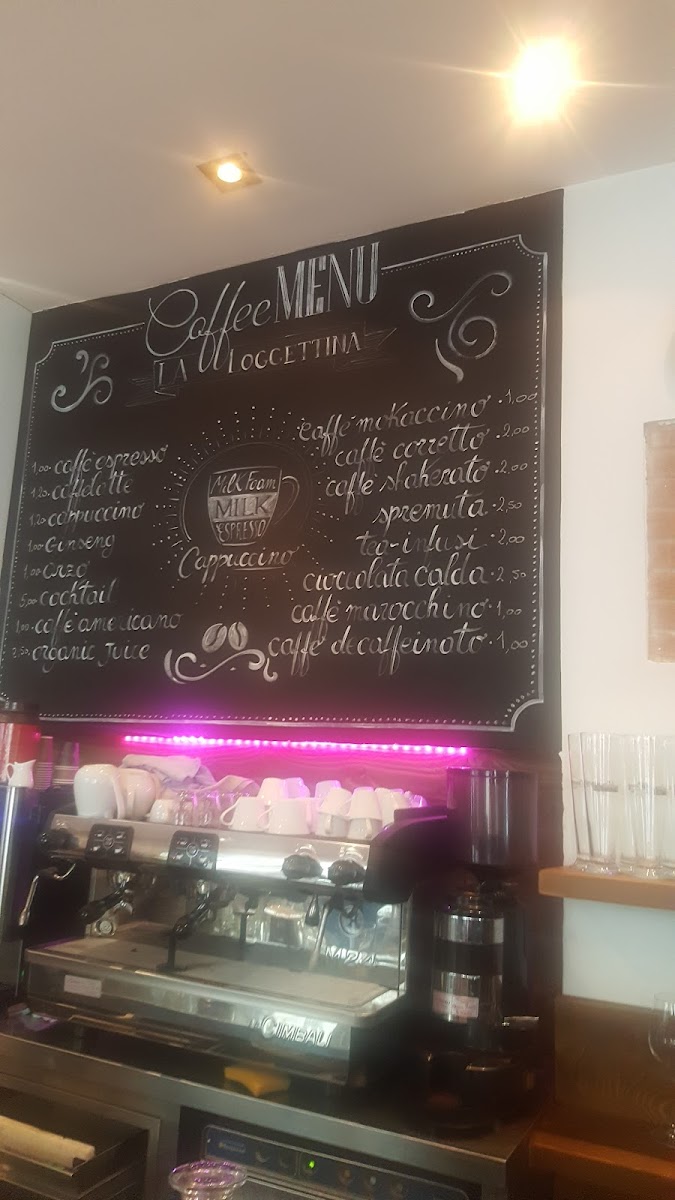 Coffee MENU
LA LOGGETTINA
1,00 caffè espresso
1,20 caffelatte
1,20 cappuccino
1,00 Ginseng
1,00 orzo
5,00 cocktail
1,00 caffè americano
2,50 organic Juice
Milk Foam
MILK
ESPRESSO
Cappuccino
caffè mokaccino · 1,00
caffè corretto · 2,00
caffè shakerato · 2,00
spremuta · 2,50
tea-infusi · 2,00
cioccolata calda · 2,50
caffè marocchino · 1,00
caffè decaffeinato · 1,00
LA CIMBALI